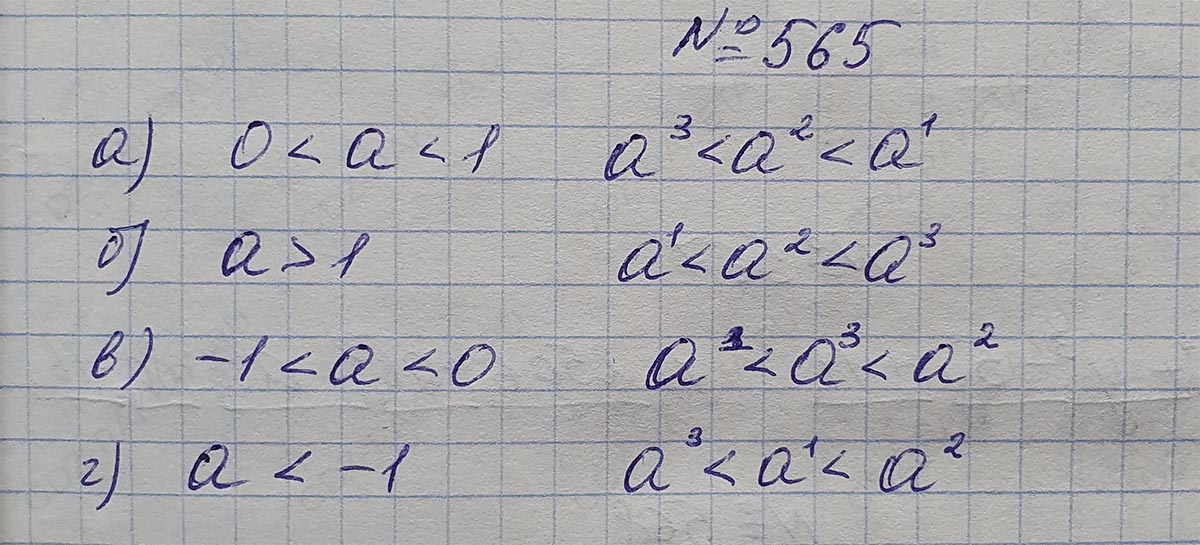 №565
а) 0 < a < 1 a³ < a² < a¹
б) a > 1 a¹ < a² < a³
в) -1 < a < 0 a¹ < a³ < a²
г) a < -1 a³ < a¹ < a²